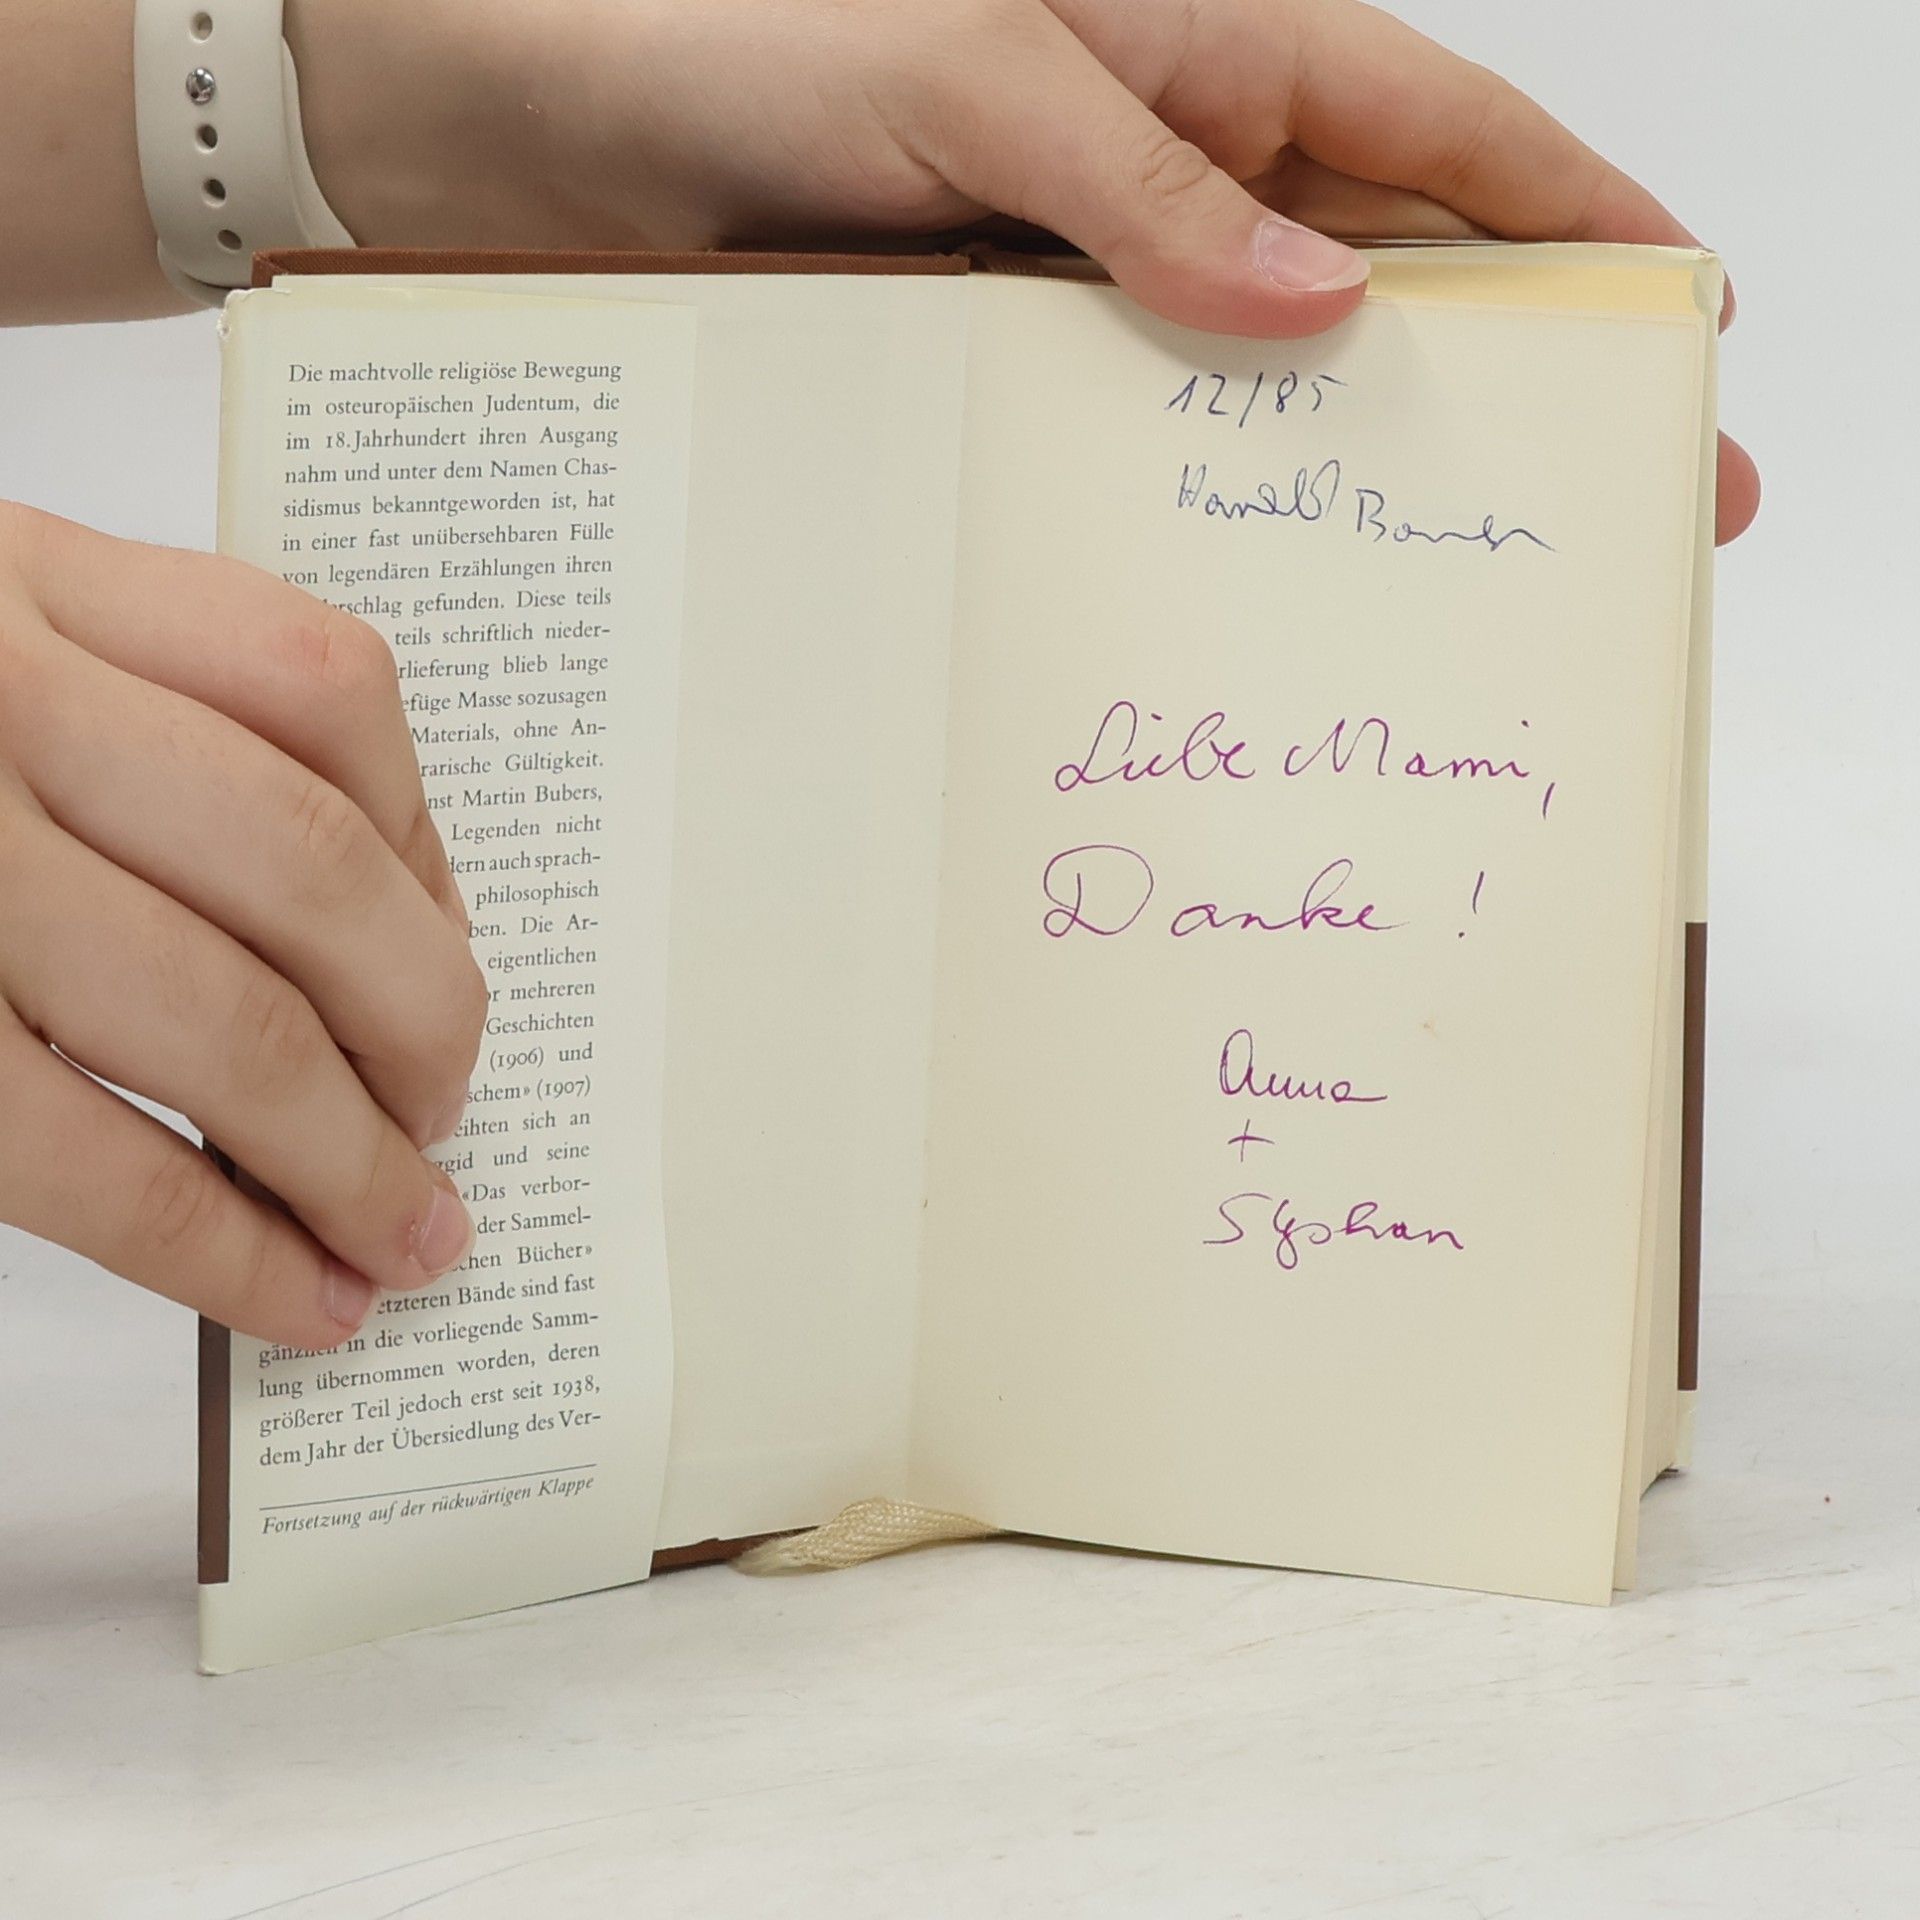 Die machtvolle religiöse Bewegung
im osteuropäischen Judentum, die
im 18. Jahrhundert ihren Ausgang
nahm und unter dem Namen Chas-
sidismus bekanntgeworden ist, hat
in einer fast unübersehbaren Fülle
von legendären Erzählungen ihren
gefunden. Diese teils
teils schriftlich nieder-
rlieferung blieb lange
efüge Masse sozusagen
Materials, ohne An-
rarische Gültigkeit.
nst Martin Bubers,
Legenden nicht
dern auch sprach-
philosophisch
ben. Die Ar-
eigentlichen
or mehreren
Geschichten
(1906) und
schem» (1907)
eihten sich an
ggid und seine
«Das verbor-
der Sammel-
chen Bücher»
etzteren Bände sind fast
gänzlich in die vorliegende Samm-
lung übernommen worden, deren
größerer Teil jedoch erst seit 1938,
dem Jahr der Übersiedlung des Ver-
Fortsetzung auf der rückwärtigen Klappe
12/85
Harald
Liebe Mami,
Danke !
Anna
+